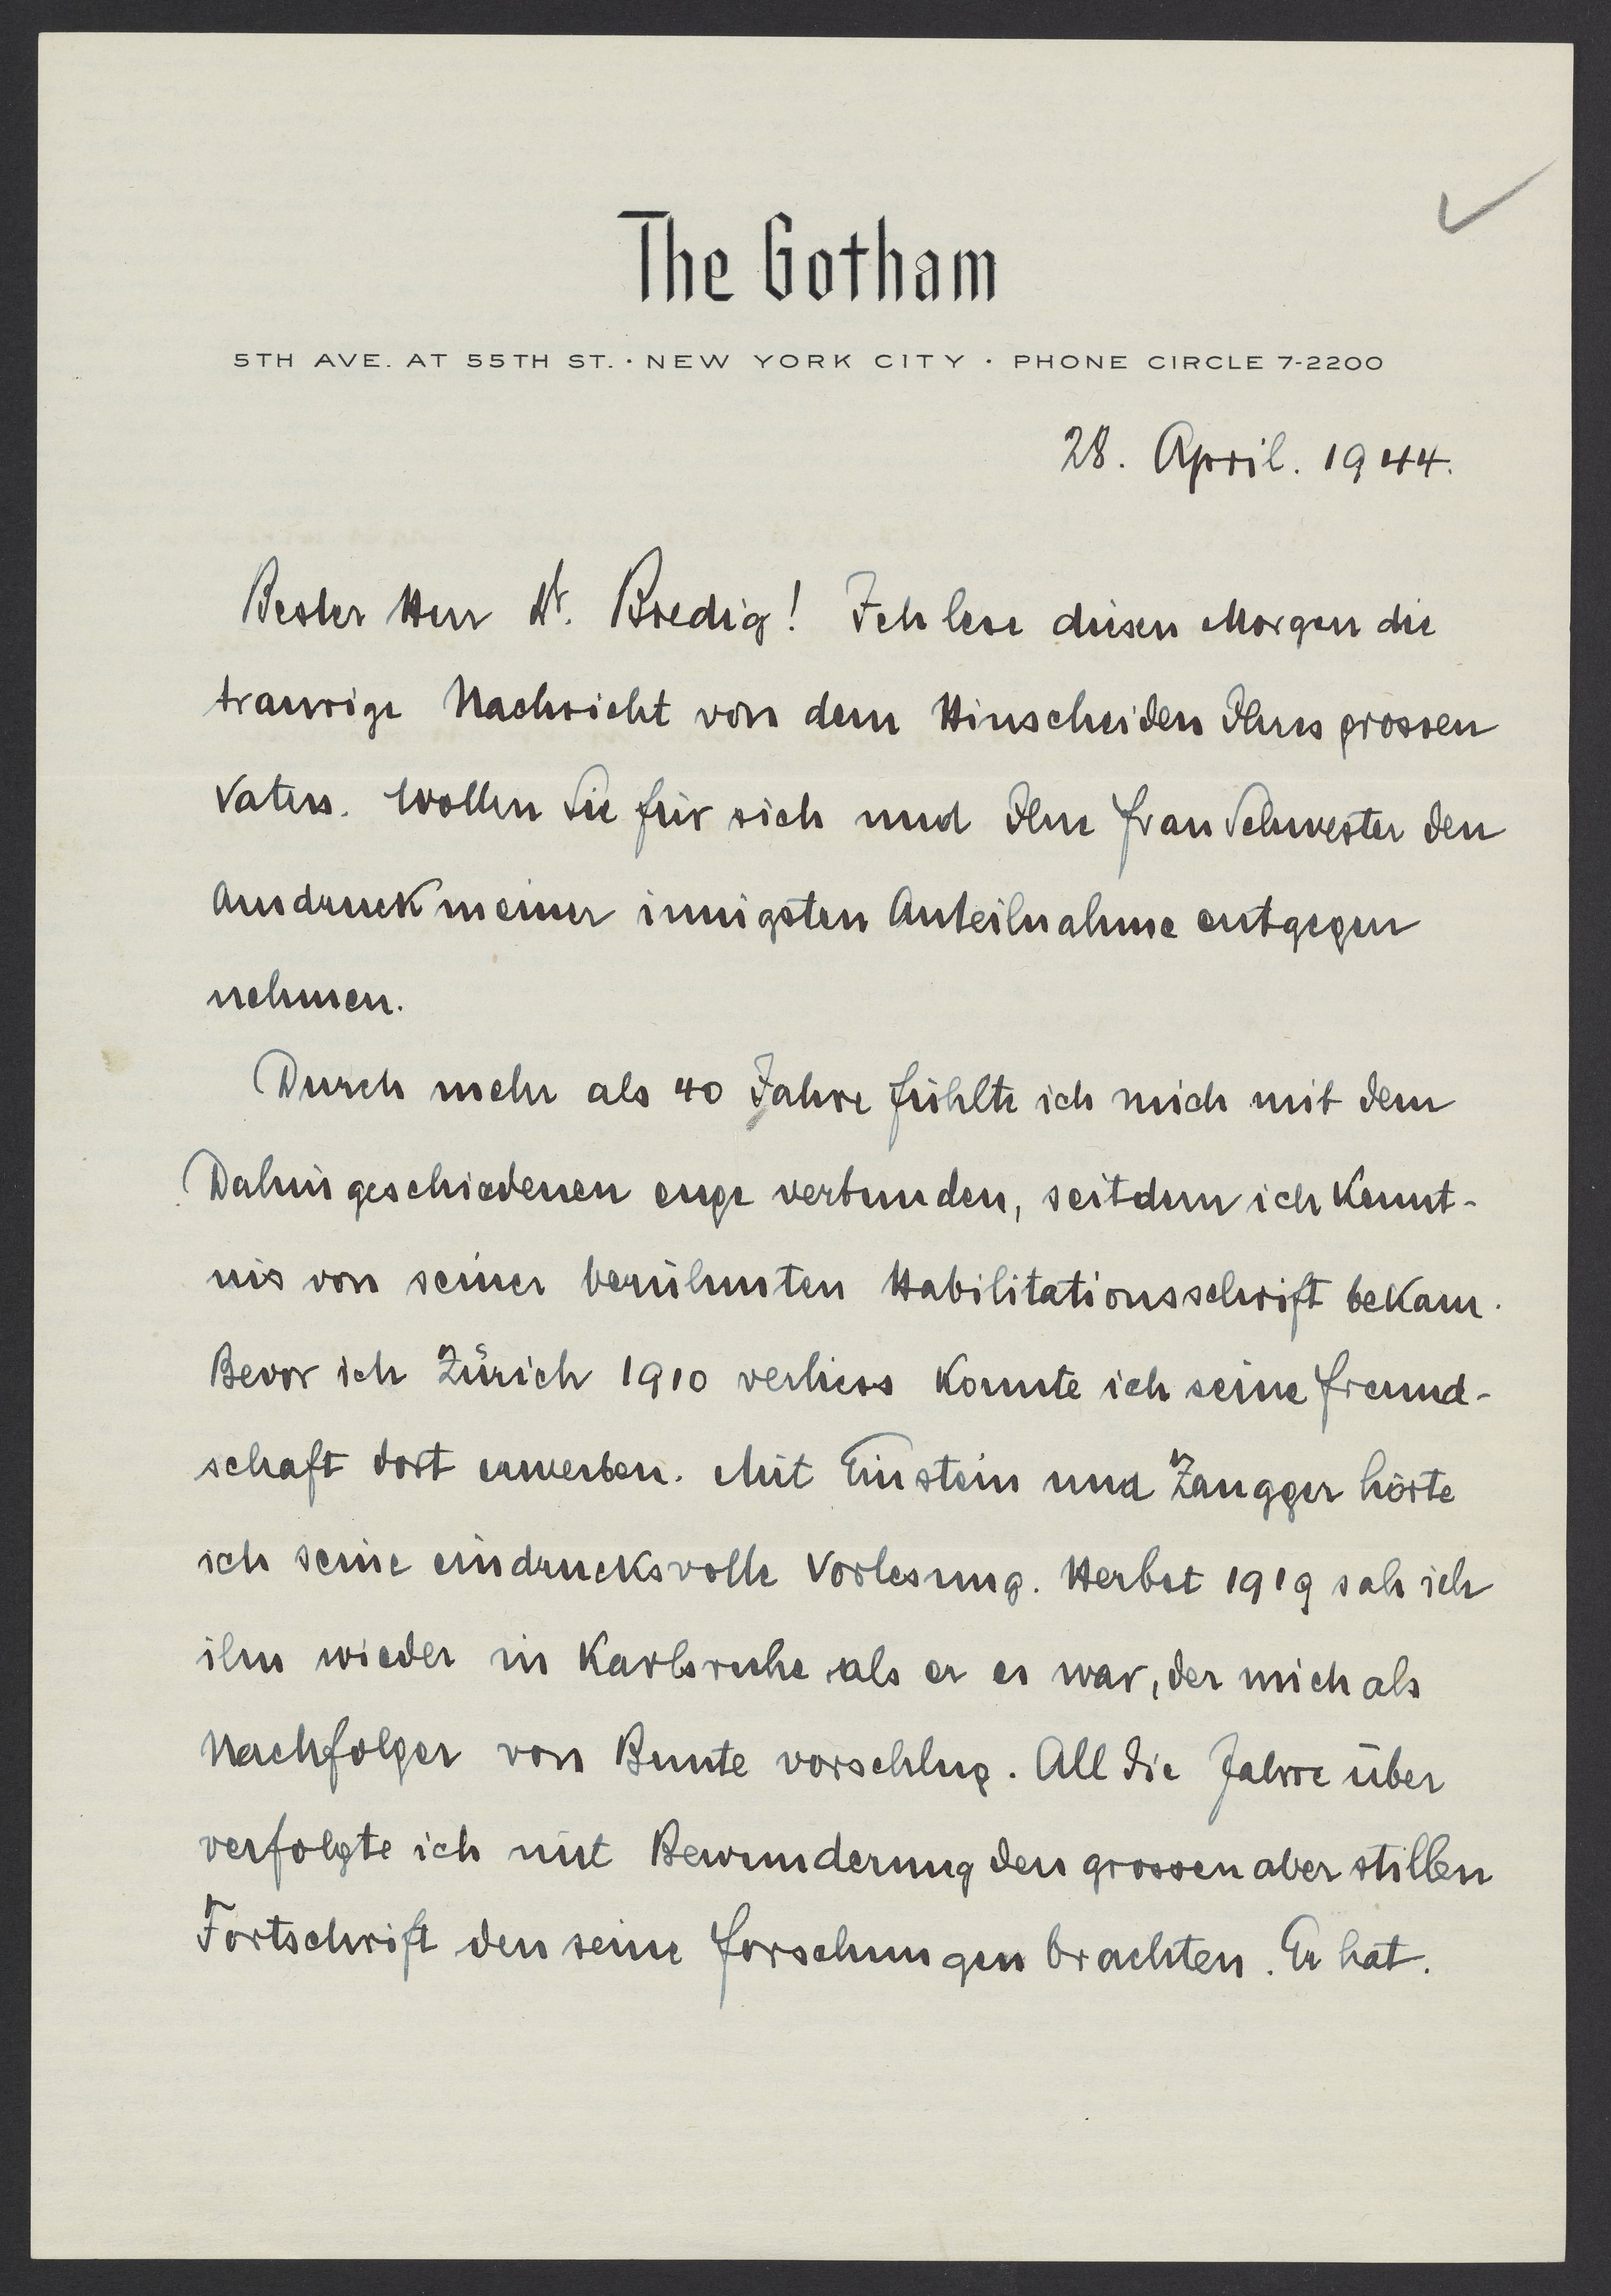 The Gotham
5TH AVE. AT 55TH ST. · NEW YORK CITY · PHONE CIRCLE 7-2200
28. April. 1944.
Bester Herr Dr. Bredig! Ich lese diesen Morgen die
traurige Nachricht von dem Hinscheiden Ihres grossen
Vaters. Wollen Sie für sich und Ihre Frau Schwester den
Ausdruck meiner innigsten Anteilnahme entgegen
nehmen.
Durch mehr als 40 Jahre fühlte ich mich mit dem
Dahingeschiedenen enge verbunden, seitdem ich Kennt-
nis von seiner berühmten Habilitationsschrift bekam.
Bevor ich Zürich 1910 verliess konnte ich seine Freund-
schaft dort erwerben. Mit Einstein und Zangger hörte
ich seine eindrucksvolle Vorlesung. Herbst 1919 sah ich
ihn wieder in Karlsruhe als er es war, der mich als
Nachfolger von Bunte vorschlug. All die Jahre über
verfolgte ich mit Bewunderung den grossen aber stillen
Fortschrift den seine Forschungen brachten. Er hat.